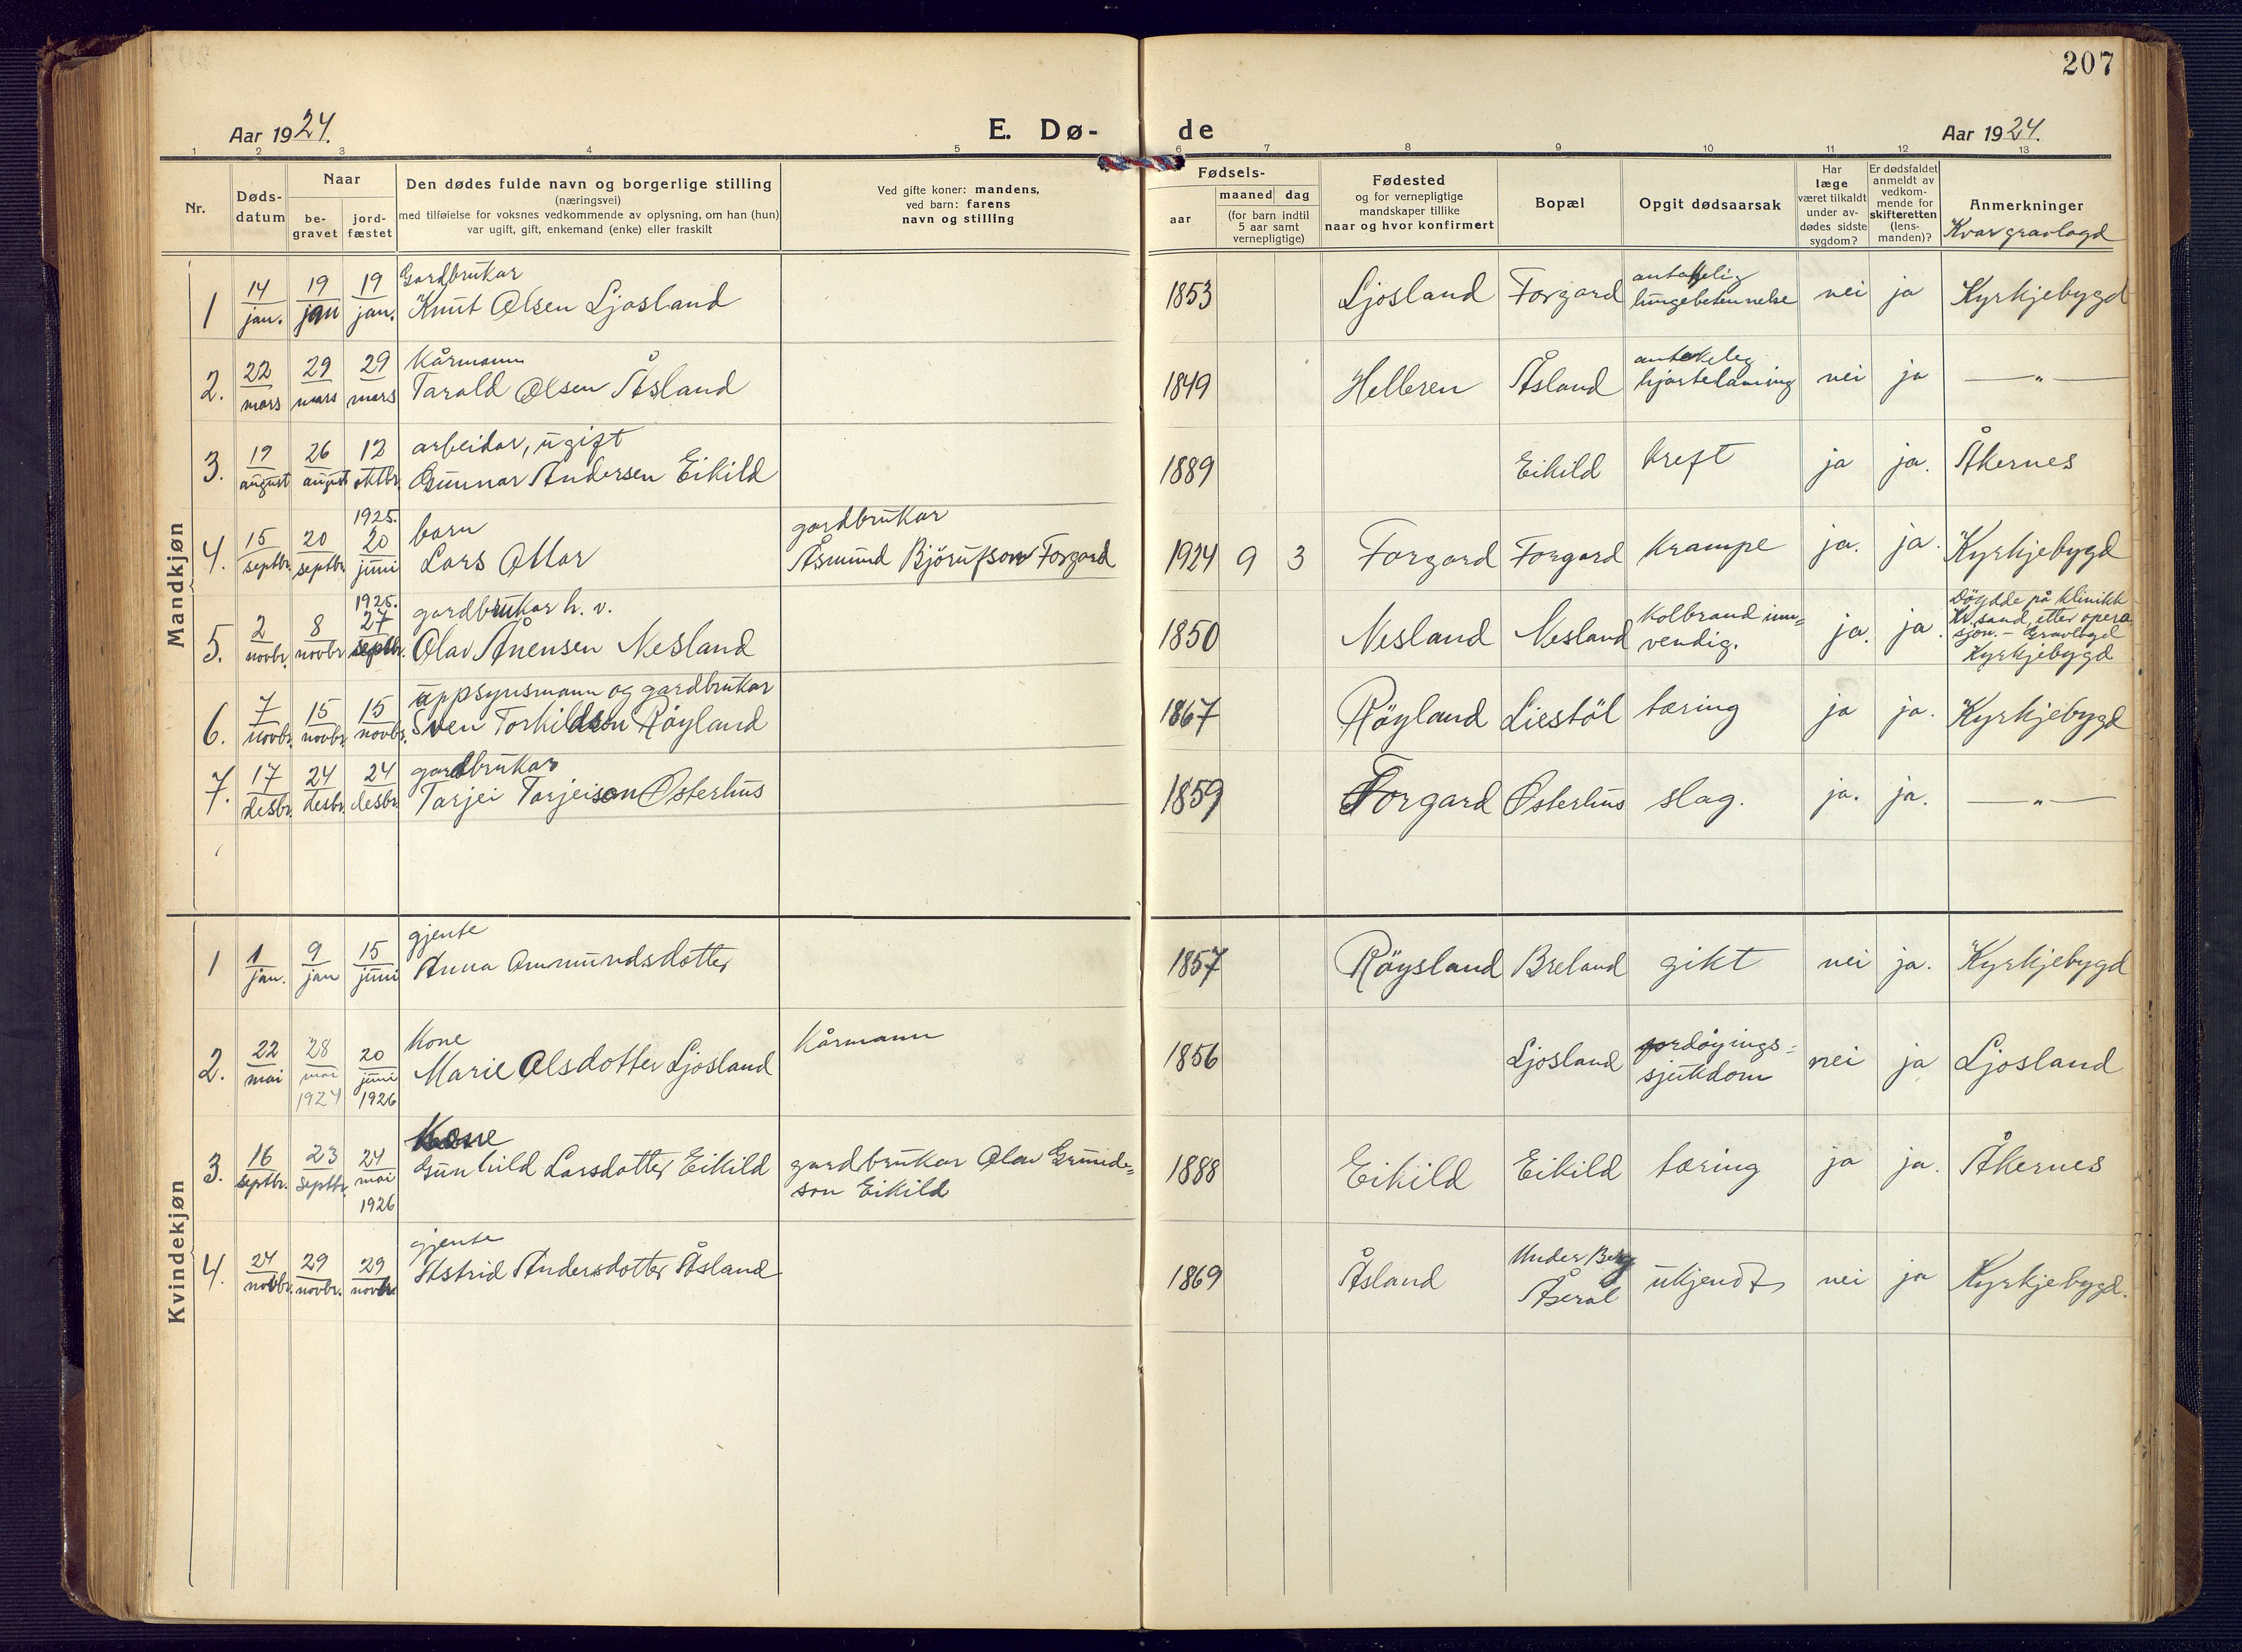 207
Aar 1924.
E. Dø-
de
Aar 1924.
1 2 3 4 5 6 7 8 9 10 11 12 13
Nr.
Døds-
datum
Naar
be-
gravet
jord-
fæstet
Den dødes fulde navn og borgerlige stilling
(næringsvei)
med tilføielse for voksnes vedkommende av oplysning, om han (hun)
var ugift, gift, enkemand (enke) eller fraskilt
Ved gifte koner: mandens,
ved barn: farens
navn og stilling
Fødsels-
aar
maaned dag
(for barn indtil
5 aar samt
vernepligtige)
Fødested
og for vernepligtige
mandskaper tillike
naar og hvor konfirmert
Bopæl
Opgit dødsaarsak
Har
læge
været tilkaldt
under av-
dødes sidste
sygdom?
Er dødsfaldet
anmeldt av
vedkom-
mende for
skifteretten
(lens-
manden)?
Anmerkninger
Kvar gravlagd
Mandkjøn
Gardbrukar antakelig
1 14 jan. 19 jan 19 jan. Knut Olsen Ljosland 1853 Ljosland Forgard lungebetennelse nei ja Kyrkjebygd
Kårmann antakeleg
2. 22 mars 29 mars 29 mars Tarald Olsen Åsland 1849 Helleren Åsland hjartelaming nei ja — „ —
arbeidar, ugift
3. 19 august 26 august 12 oktbr. Gunnar Andersen Eikild 1889 Eikild kreft ja ja. Åkernes
1925. barn gardbrukar
4. 15 septbr. 20 septbr. 20 juni Lars Ottar Åsmund Björufson Forgard 1924 9 3 Forgard Forgard krampe ja. ja. Kyrkjebygd
1925. gardbrukar h. v. kolbrand inn= Döydde på klinikk
5. 2 novbr. 8 novbr 27 septbr. Olav Ånensen Nesland 1850 Nesland Nesland vendig. ja. ja. Kr.sand, etter opera
sjon. – Gravlagd
Kyrkjebygd
uppsynsmann og gardbrukar
6. 7 novbr. 15 novbr. 15 novbr. Sven Torkildson Röyland 1867 Röyland Liestöl tæring ja ja. Kyrkjebygd
gardbrukar
7. 17 desbr. 24 desbr. 24 desbr. Tarjei Tarjeison Østerhus 1859 Forgard Østerhus slag. ja. ja. — „ —
Kvindekjøn
gjente
1 1 jan. 9 jan 15 juni Anna Ommundsdotter 1857 Röysland Breland gikt nei ja. Kyrkjebygd
Kone Kårmann fordöyings=
2. 22 mai 28 mai 1924 20 juni 1926 Marie Olsdotter Ljosland 1856 Ljosland sjukdom nei ja Ljosland
Kone
3. 16 septbr. 23 septbr. 24 mai 1926 Gunhild Larsdotter Eikild gardbrukar Olav Gunde=
son Eikild 1888 Eikild Eikild tæring ja ja. Åkernes
gjente Under Berg
4. 24 novbr. 29 novbr. 29 novbr. Astrid Andersdotter Åsland 1869 Åsland Åseral ukjendt nei ja Kyrkjebygd.